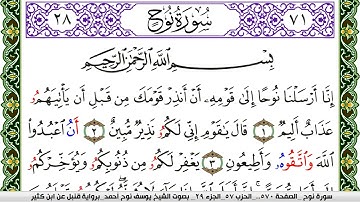 ٧١ سُورَةُ نُوحٍ ٢٨
بِسْمِ اللَّهِ الرَّحْمَٰنِ الرَّحِيمِ
إِنَّا أَرْسَلْنَا نُوحًا إِلَىٰ قَوْمِهِۦ أَنْ أَنذِرْ قَوْمَكَ مِن قَبْلِ أَن يَأْتِيَهُمُۥ
عَذَابٌ أَلِيمٌ ١ قَالَ يَٰقَوْمِ إِنِّي لَكُمُۥ نَذِيرٌ مُّبِينٌ ٢ أَنُ اعْبُدُوا۟
اللَّهَ وَاتَّقُوهُۥ وَأَطِيعُونِ ٣ يَغْفِرْ لَكُمُۥ مِن ذُنُوبِكُمُۥ وَيُؤَخِّرْكُمُۥ
سورة نوح _ الصفحة ٥٧٠ _ الحزب ٥٧ _ الجزء ٢٩ _ بصوت الشيخ يوسف نوح أحمد _ برواية قنبل عن ابن كثير